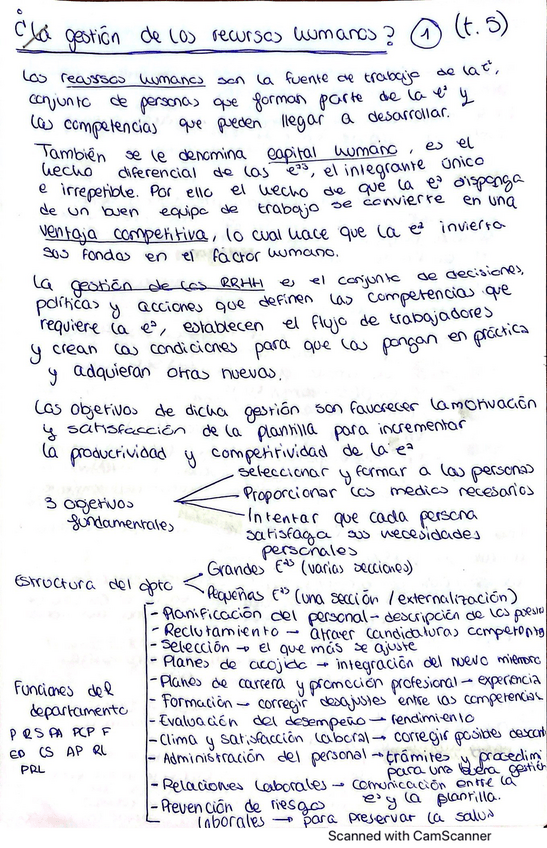 ¿La gestión de los recursos humanos? 1 (t.5)
Los recursos humanos son la fuente de trabajo de la eª,
conjunto de personas que forman parte de la eª y
las competencias que pueden llegar a desarrollar.
También se le denomina capital humano, es el
hecho diferencial de las eªs, el integrante único
e irrepetible. Por ello el hecho de que la eª disponga
de un buen equipo de trabajo se convierte en una
ventaja competitiva, lo cual hace que la eª invierta
sus fondos en el factor humano.
La gestión de los RRHH es el conjunto de decisiones,
políticas y acciones que definen las competencias que
requiere la eª, establecen el flujo de trabajadores
y crean las condiciones para que las pongan en práctica
y adquieran otras nuevas.
Los objetivos de dicha gestión son favorecer la motivación
y satisfacción de la plantilla para incrementar
la productividad y competitividad de la eª
3 objetivos
fundamentales
seleccionar y formar a las personas
Proporcionar los medios necesarios
Intentar que cada persona
satisfaga sus necesidades
personales
Estructura del dpto
Grandes Eªs (varias secciones)
Pequeñas Eªs (una sección / externalización)
Funciones del
departamento
P R S PA PCP F
ED CS AP RL
PRL
- Planificación del personal - descripción de los
- Reclutamiento → atraer candidaturas
- Selección → el que más se ajuste
- Planes de acojida → integración del nuevo miembro
- Planes de carrera y promoción profesional → experiencia
- Formación → corregir desajustes entre las
- Evaluación del desempeño → rendimiento
- Clima y satisfacción laboral → corregir posibles
- Administración del personal → trámites y
para una buena
- Relaciones laborales → comunicación entre la
eª y la plantilla.
- Prevención de riesgos
laborales → para preservar la salud
Scanned with CamScanner